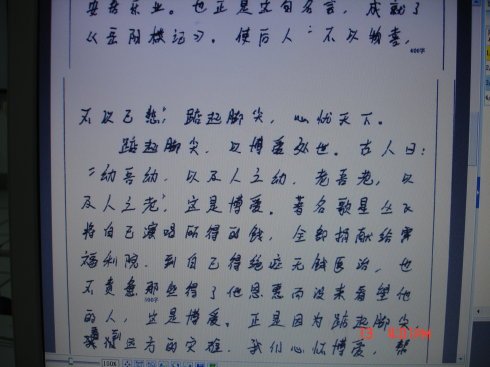 安居乐业。也正是这句名言，成就了
《岳阳楼记》。使后人“不以物喜，
600字
不以己悲”，踮起脚尖，心忧天下。
踮起脚尖，以博爱处世。古人曰：
“幼吾幼，以及人之幼，老吾老，以
及人之老”，这是博爱。著名歌星丛飞
将自己演唱所得的钱，全部捐献给
福利院，到自己得绝症无钱医治，也
不责怪那些得了他恩惠而没来看望他
的人，这是博爱。正是因为踮起脚尖
远方的灾难，我们心怀博爱，
100%